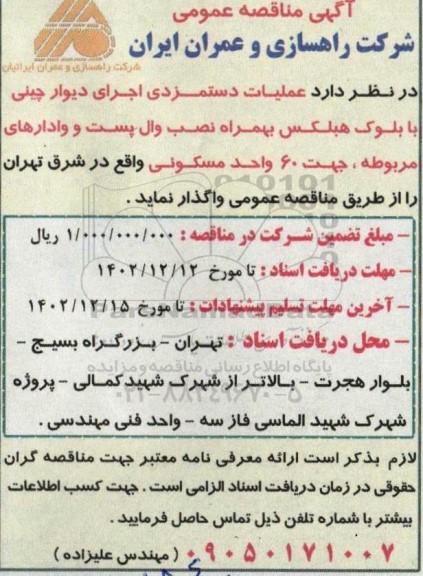 آگهی مناقصه عمومی
شرکت راهسازی و عمران ایران
شرکت راهسازی و عمران ایرانیان
در نظر دارد عملیات دستمزدی اجرای دیوار چینی
با بلوک هبلکس بهمراه نصب وال پست و وادارهای
مربوطه ، جهت ۶۰ واحد مسکونی واقع در شرق تهران
را از طریق مناقصه عمومی واگذار نماید .
– مبلغ تضمین شرکت در مناقصه : ۱/۰۰۰/۰۰۰/۰۰۰ ریال
– مهلت دریافت اسناد : تا مورخ ۱۴۰۲/۱۲/۱۲
– آخرین مهلت تسلیم پیشنهادات : تا مورخ ۱۴۰۲/۱۲/۱۵
– محل دریافت اسناد : تهران – بزرگراه بسیج –
پایگاه اطلاع رسانی مناقصه و مزایده
بلوار هجرت – بالاتر از شهرک شهید کمالی – پروژه
۰۲۱-۸۸۳۴۹۶۷۰-۵
شهرک شهید الماسی فاز سه – واحد فنی مهندسی .
لازم بذکر است ارائه معرفی نامه معتبر جهت مناقصه گران
حقوقی در زمان دریافت اسناد الزامی است . جهت کسب اطلاعات
بیشتر با شماره تلفن ذیل تماس حاصل فرمایید .
۰۹۰۵۰۱۷۱۰۰۷ ( مهندس علیزاده )